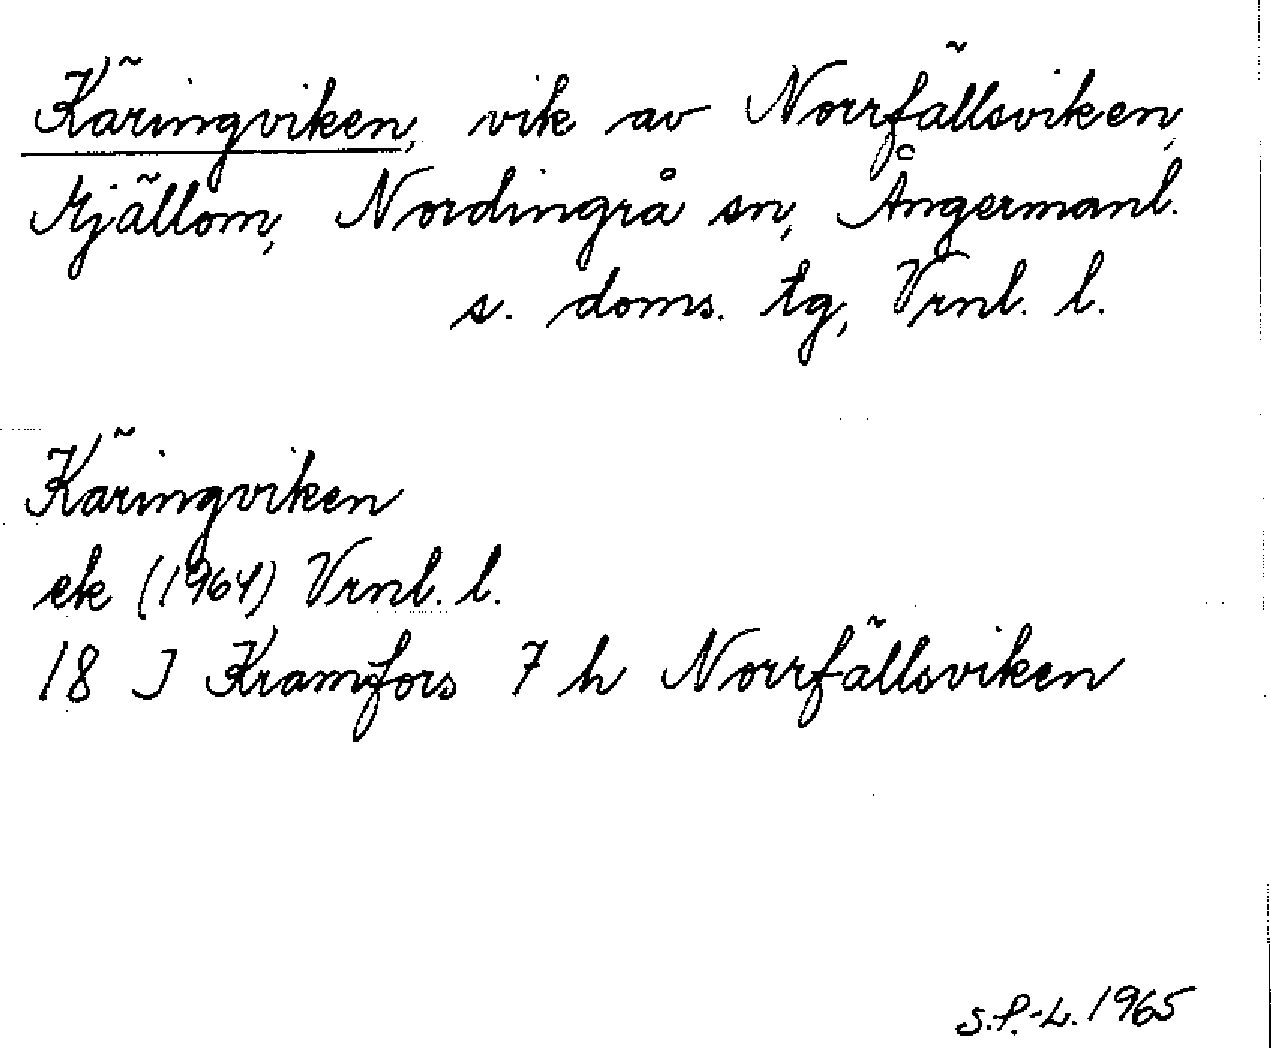 Käringviken, vik av Norrfällsviken,
Mjällom, Nordingrå sn, Ångermanl.
s. doms. tg, Vrnl. l.
Käringviken
ek (1964) Vrnl. l.
18 J Kramfors 7 h Norrfällsviken
S.P.-L. 1965